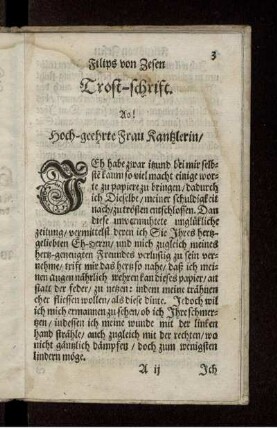 3
Filips von Zesen
Trost-schrift.
An!
Hoch-geehrte Frau Kantzlerin/
ICh habe zwar itzund bei mir selb-
ste kaum so viel macht einige wor-
te zu papiere zu bringen / dadurch
ich Dieselbe / meiner schuldigkeit
nach / zu trösten entschlossen. Dan
diese unvermuhtete unglükliche
zeitung / vermittelst deren ich Sie Ihres hertz-
geliebten Eh-herrn / und mich zugleich meines
hern-geneugten Freundes verlustig zu sein ver-
nehme / trift mir das hertz so nahe / daß ich mei-
nen augen nährlich wehren kan dieses papier / an
statt der feder / zu netzen: indem meine trähnen
eher fliessen wollen / als diese dinte. Jedoch wil
ich mich ermannen zu sehen / ob ich Ihr schmer-
tzen / indessen ich meine wunde mit der linken
hand strähle / auch zugleich mit der rechten / wo
nicht gäntzlich dämpfen / doch zum wenigsten
lindern möge.
A ij Jch